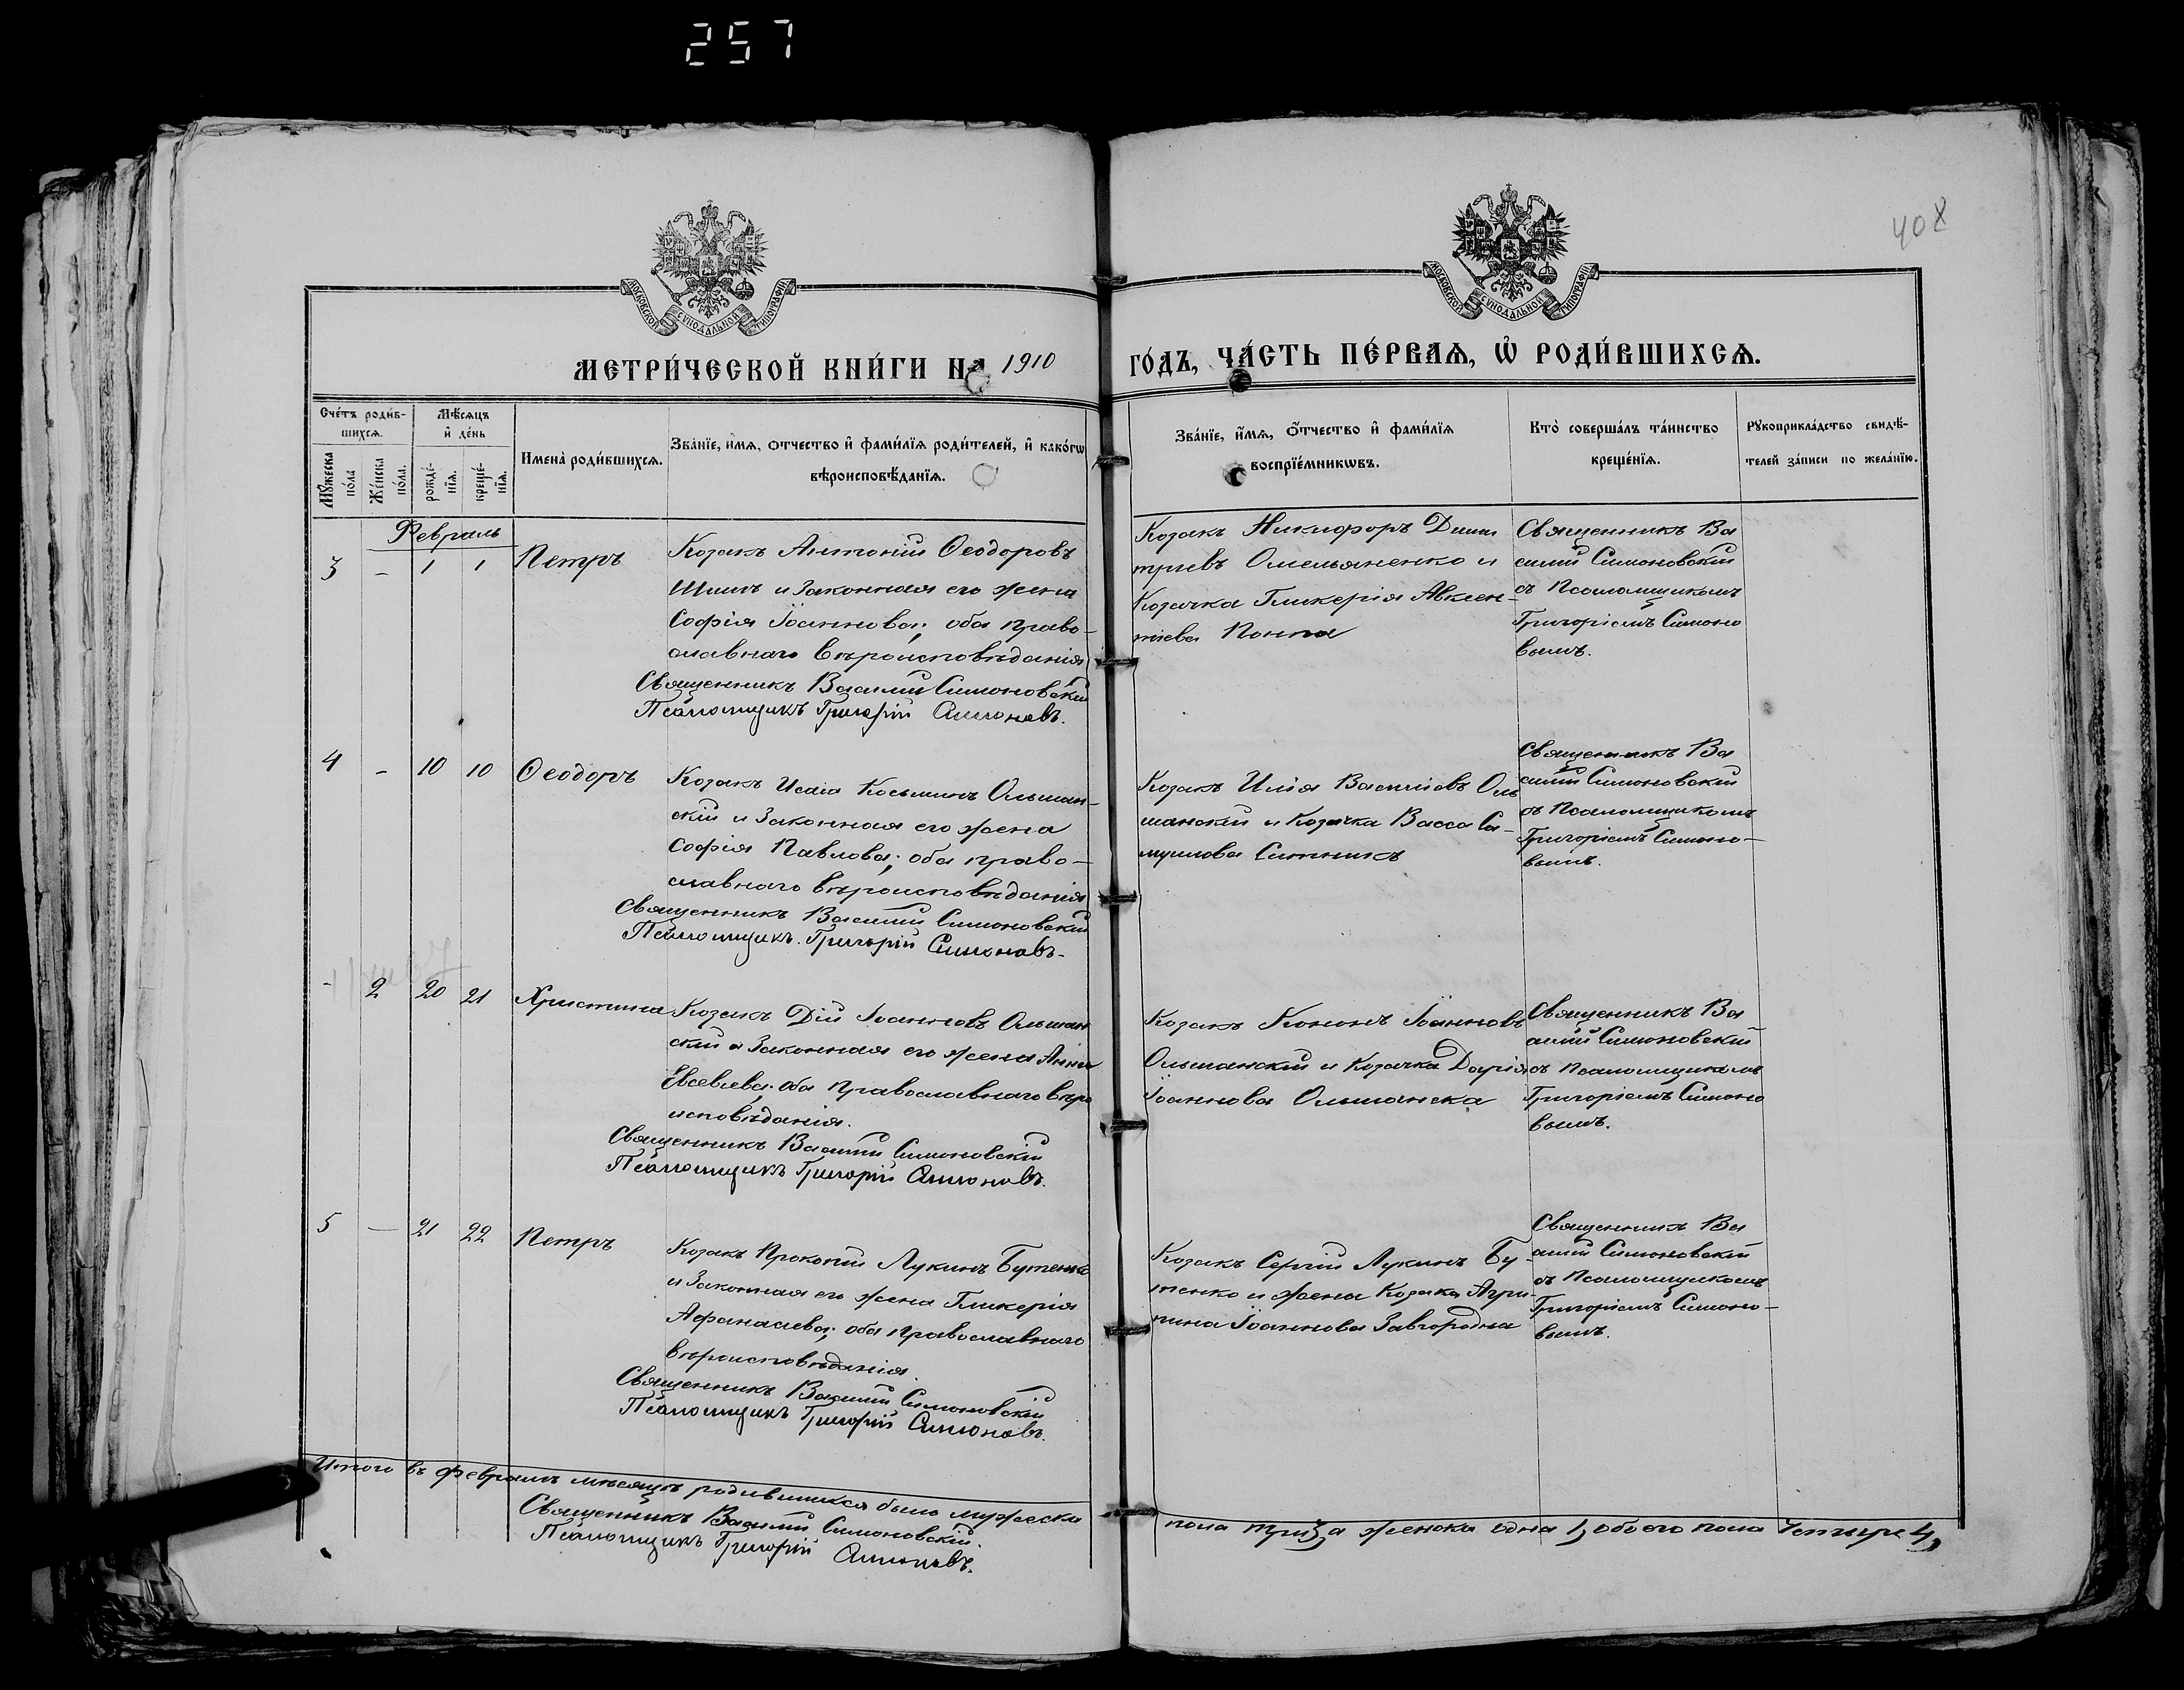 257
408
МОСКОВСКОЙ СѴНОДАЛЬНОЙ ТИПОГРАФІИ
МОСКОВСКОЙ СѴНОДАЛЬНОЙ ТИПОГРАФІИ
МЕТРИ́ЧЕСКОЙ КНИ́ГИ НА 1910 ГО́ДЪ, ЧА́СТЬ ПЕ́РВАЯ, Ѡ҆ РОДИ́ВШИХСЯ.
Сче́тъ роди́в-
шихся.
Мѣ́сяцъ
и҆ де́нь
Мꙋ́жеска
по́ла
Же́нска
по́ла.
рожде́-
нїя.
креще́-
нїя.
Имена̀ роди́вшихся.
Зва́нїе, и҆́мя, ѻтчество и҆ фами́лїя роди́телей, и҆ како́гѡ
вѣроисповѣ́данїя.
Зва́нїе, и҆́мя, ѻ҆́тчество и҆ фами́лїя
воспрїе́мникѡвъ.
Кто̀ соверша́лъ та́инство
креще́нїя.
Рꙋкоприкла́дство свидѣ́-
телей за́писи по жела́нїю.
Февраль
3 - 1 1 Петръ
Козакъ Антоній Ѳеодоровъ
Шишъ и законная его жена
Софія Іоаннова; оба право-
славнаго вѣроисповѣданія
Священникъ Василій Симоновскій
Псаломщикъ Григорій Симоновъ.
Козакъ Никифоръ Дими
тріевъ Омельяненко и
Козачка Гликерія Авксен-
тіева Понпа
Священникъ Ва
силій Симоновскій
съ Псаломщикомъ
Григоріемъ Симоно
вымъ.
4 - 10 10 Ѳеодоръ
Козакъ Исаія Косьминъ Ольшан-
скій и законная его жена
Софія Павлова; оба право-
славнаго вѣроисповѣданія
Священникъ Василій Симоновскій
Псаломщикъ Григорій Симоновъ.
Козакъ Илія Василіевъ Оль
шанскій и Козачка Васса Са-
муилова Ситникъ
Священникъ Ва
силій Симоновскій
съ Псаломщикомъ
Григоріемъ Симоно-
вымъ.
- 2 20 21 Христина
Козакъ Дій Іоанновъ Ольшан
скій и законная его жена Анна
Евсевіева; оба Православнаго вѣро
исповѣданія.
Священникъ Василій Симоновскій
Псаломщикъ Григорій Симоновъ.
Козакъ Кононъ Іоанновъ
Ольшанскій и Козачка Дарія
Іоаннова Ольшанска
Священникъ Ва
силій Симоновскій
съ Псаломщикомъ
Григоріемъ Симоно
вымъ.
5 — 21 22 Петръ
Козакъ Прокопій Лукинъ Бутенко
и законная его жена Гликерія
Афанасіева; оба Православнаго
вѣроисповѣданія.
Священникъ Василій Симоновскій
Псаломщикъ Григорій Симоновъ.
Козакъ Сергій Лукинъ Бу-
тенко и жена Козака Агри-
пина Іоаннова Завгородня
Священникъ Ва
силій Симоновскій
съ Псаломщикомъ
Григоріемъ Симоно-
вымъ.
Итого въ февралѣ мѣсяцѣ родившихся было мужеска
пола три 3, а женска одна 1, обоего пола четыре 4,
Священникъ Василій Симоновскій.
Псаломщикъ Григорій Симоновъ.